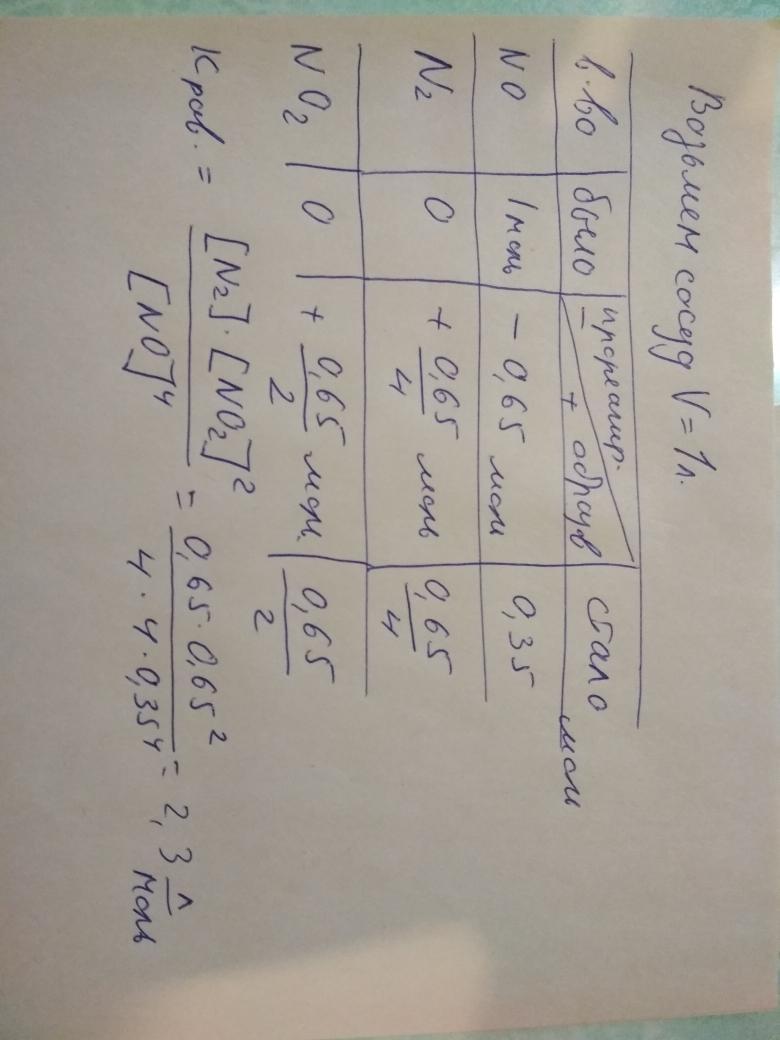 Возьмем сосуд V = 1 л.
в-во было прореагир. − / + образов стало моль
NO 1 моль − 0,65 моль 0,35
N₂ 0 + 0,65/4 моль 0,65/4
NO₂ 0 + 0,65/2 моль. 0,65/2
Kрав. = [N₂]·[NO₂]²/[NO]⁴ = 0,65·0,65²/4·4·0,35⁴ = 2,3 л/моль